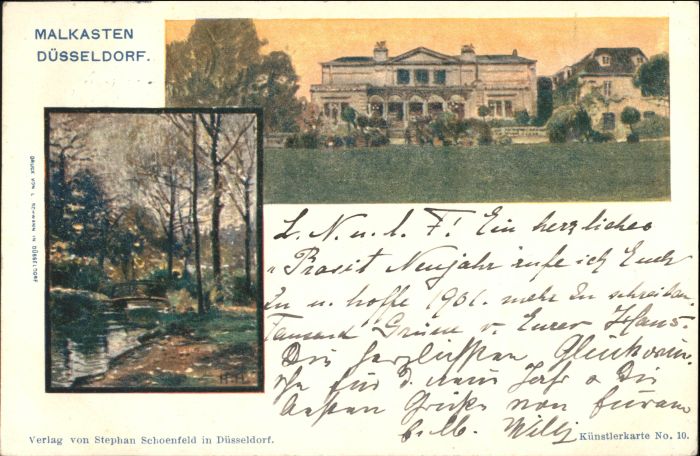 MALKASTEN
DÜSSELDORF.
DRUCK VON L. SCHWANN IN DÜSSELDORF
L. N. u. l. F! Ein herzliches
"Prosit Neujahr rufe ich Euch
zu u. hoffe 1901. mehr zu schreiben.
Tausend Grüsse v. Eurer Hans.
Die herzlichsten Glückwün-
sche für d. neue Jahr u Die
besten Grüße von Eurem
Willy
Verlag von Stephan Schoenfeld in Düsseldorf.
Künstlerkarte No. 10.